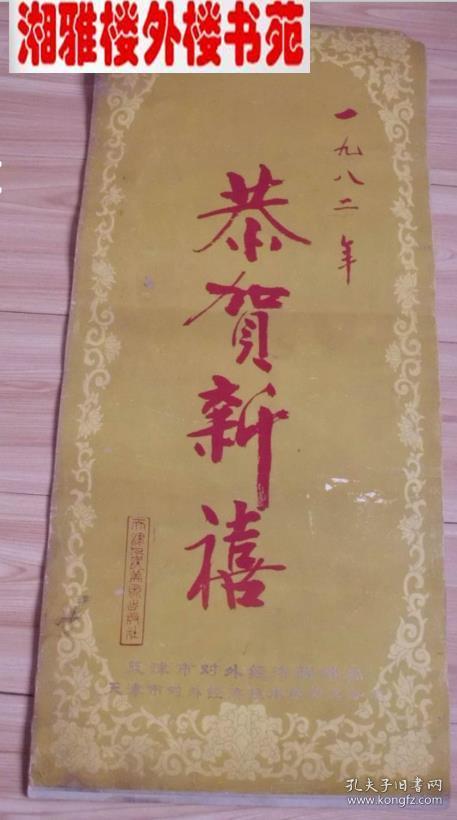 湘雅楼外楼书苑
一九八二年
恭贺新禧
天津杨柳青画店出版社
天津市对外经济联络局
天津市对外经济技术
孔夫子旧书网
www.kongfz.com